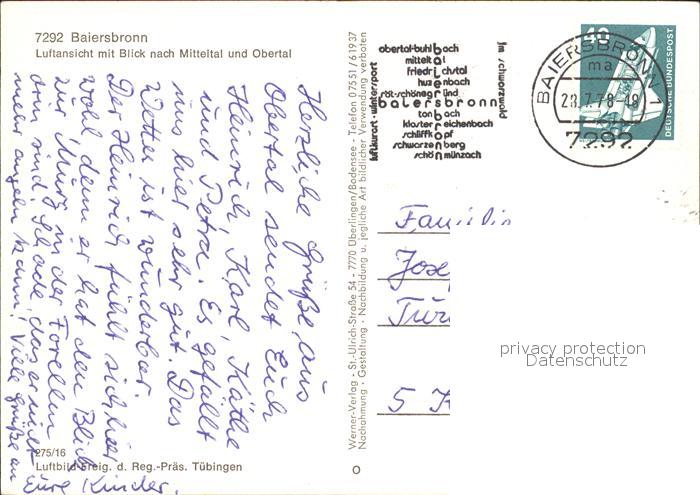 7292 Baiersbronn
Luftansicht mit Blick nach Mitteltal und Obertal
Herzliche Grüße aus
Obertal sendet Euch
Heinrich, Karl, Käthe
und Petra. Es gefällt
uns hier sehr gut. Das
Wetter ist wunderbar.
Der Heinrich fühlt sich hier
wohl denn er hat den Blick
zur Murg in der Forellen
drin sind. Schade, das er nicht
mehr angeln kann! Viele Grüße an
Eure Kinder.
275/16
Luftbild-Freig. d. Reg.-Präs. Tübingen
Werner-Verlag - St.-Ulrich-Straße 54 - 7770 Überlingen/Bodensee - Telefon 07551/61937
Nachahmung - Gestaltung - Nachbildung u. jegliche Art bildlicher Verwendung verboten
luftkurort·wintersport
obertal-buhlbach
mitteltal
friedrichstal
huzenbach
röt-schönegründ
baiersbronn
tonbach
klosterreichenbach
schliffkopf
schwarzenberg
schönmünzach
im schwarzwald
BAIERSBRONN 1
ma
28.7.78-18
7292
40
DEUTSCHE BUNDESPOST
Familie
Jose
Tür
5 K
privacy protection
Datenschutz